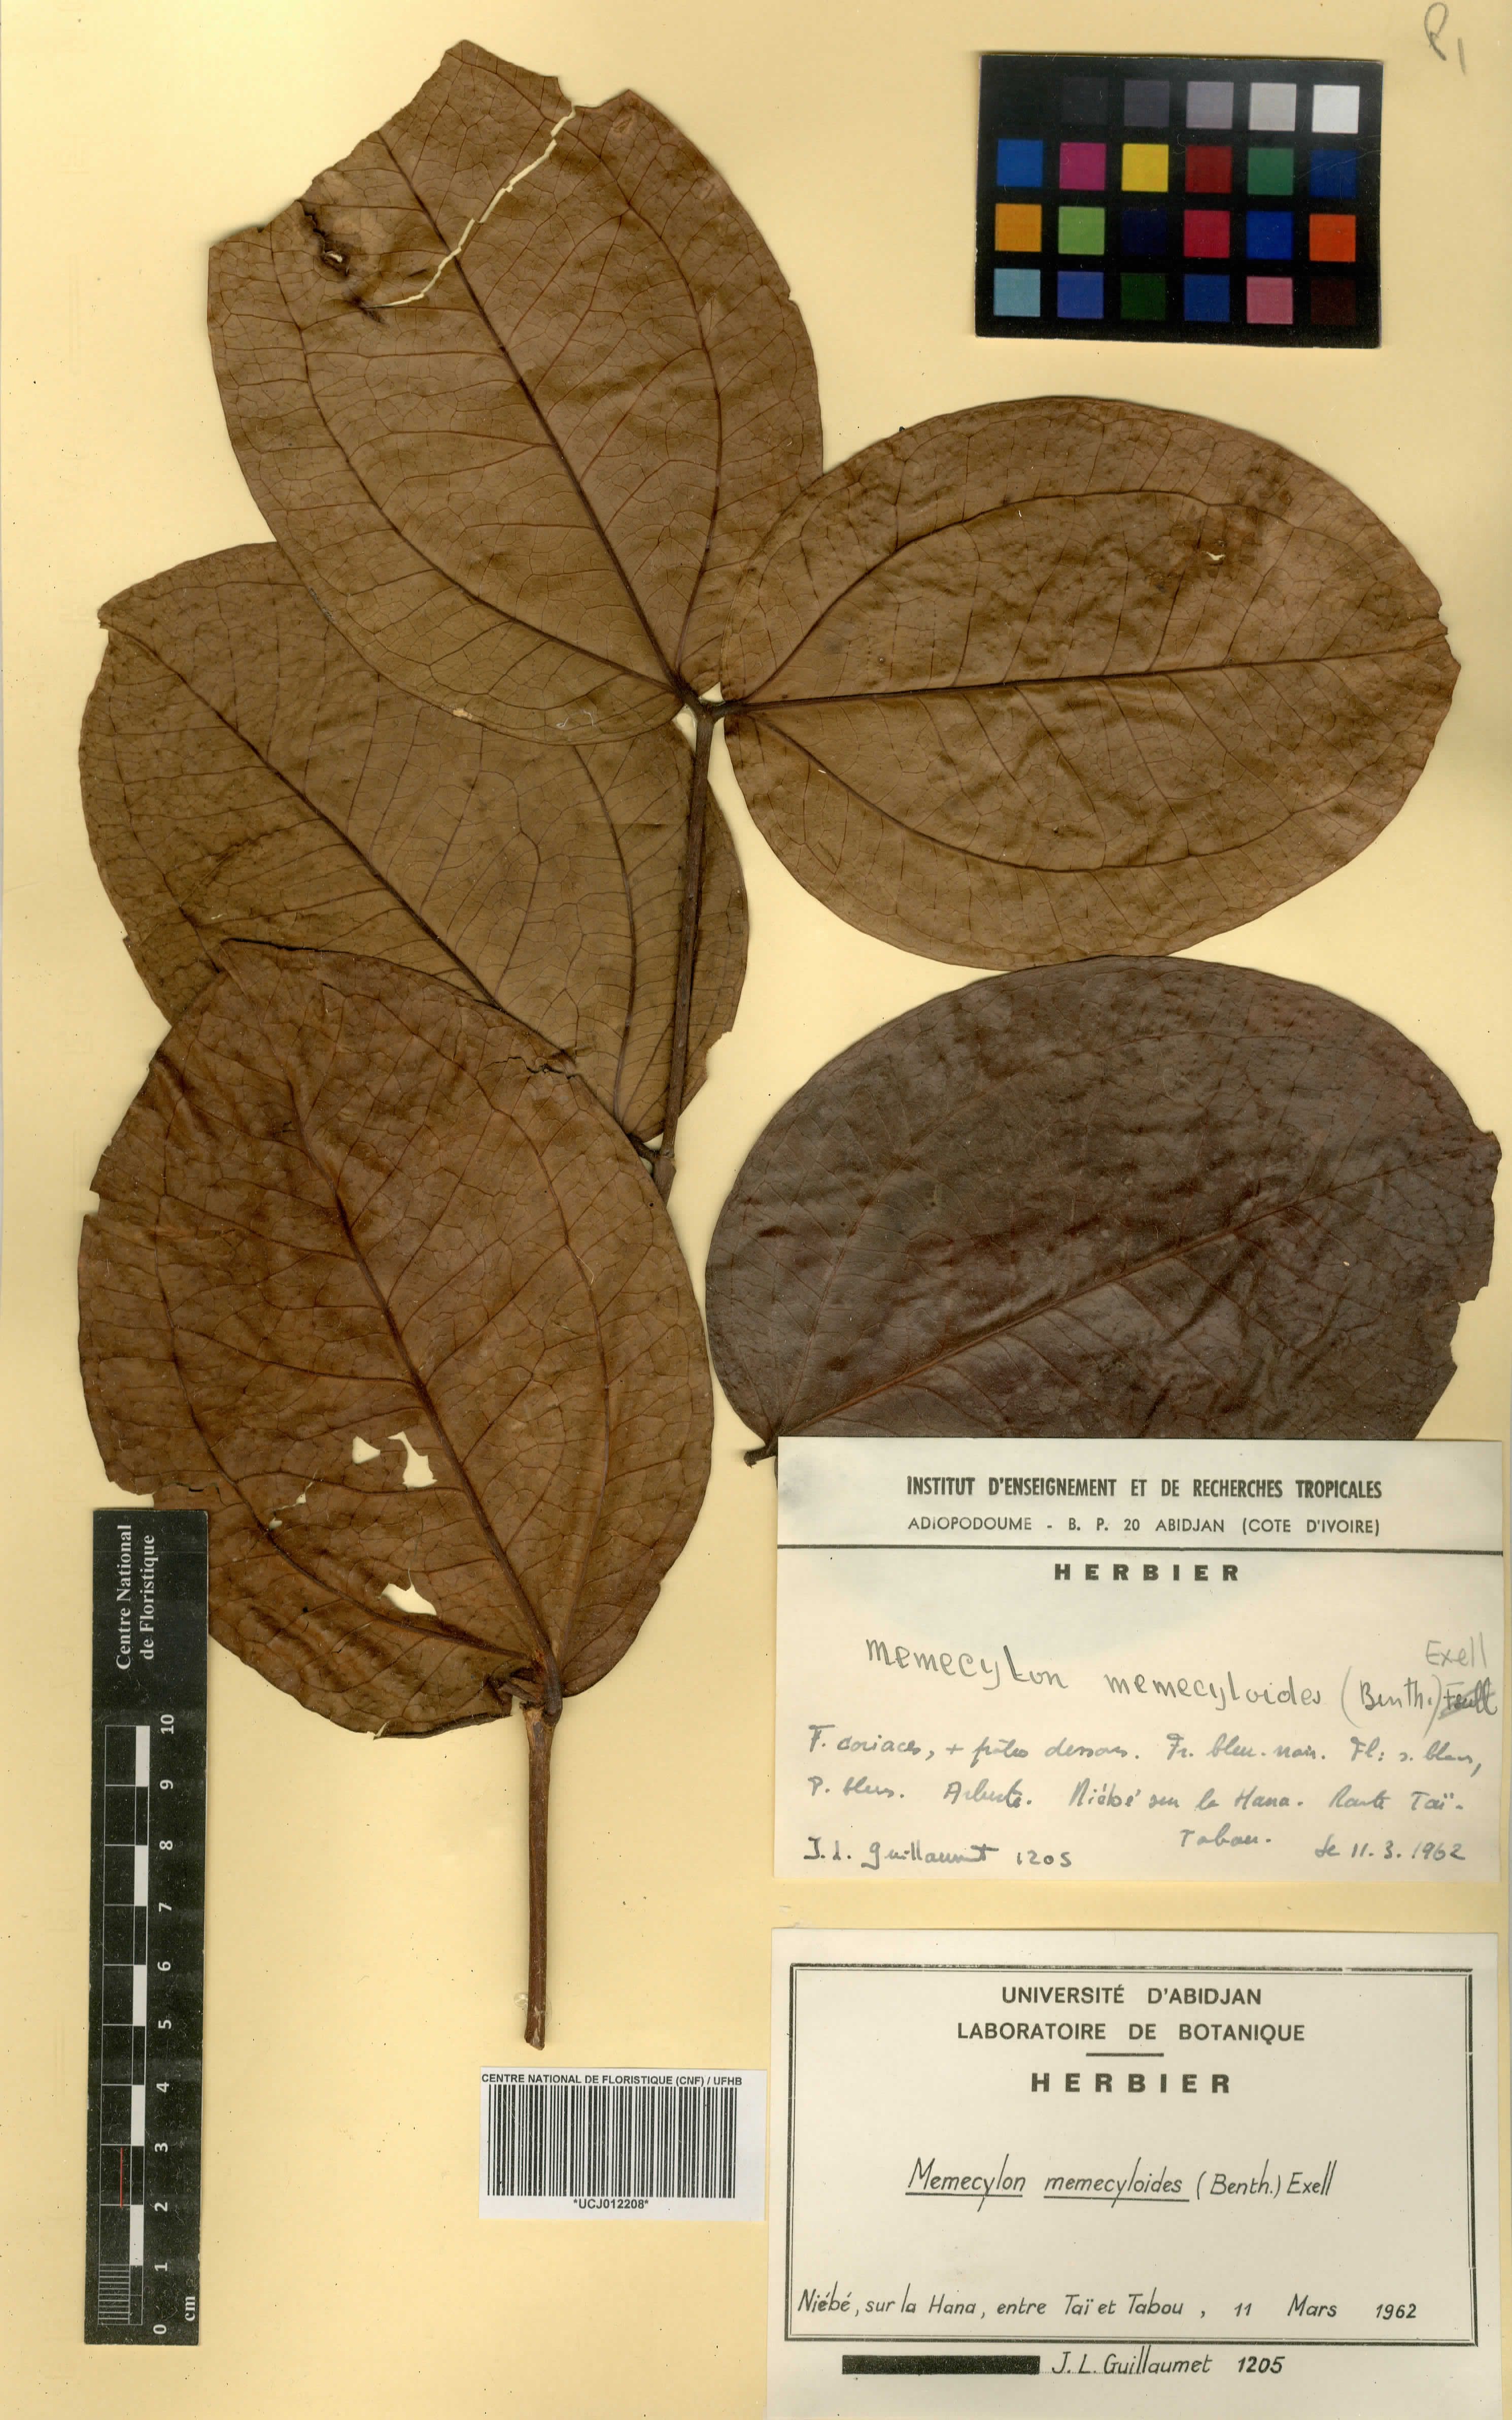 P1
INSTITUT D'ENSEIGNEMENT ET DE RECHERCHES TROPICALES
ADIOPODOUME - B. P. 20 ABIDJAN (COTE D'IVOIRE)
HERBIER
Exell
Memecylon memecyloides (Benth.)
F. coriaces, + pâles dessous. Fr. bleu-noir. Fl: s. blancs,
P. bleus. Arbuste. Niébé sur la Hana. Route Taï-
Tabou.
J. L. Guillaumet 1205 le 11. 3. 1962
UNIVERSITÉ D'ABIDJAN
LABORATOIRE DE BOTANIQUE
HERBIER
Memecylon memecyloides (Benth.) Exell
Niébé, sur la Hana, entre Taï et Tabou, 11 Mars 1962
J. L. Guillaumet 1205
CENTRE NATIONAL DE FLORISTIQUE (CNF) / UFHB
*UCJ012208*
Centre National
de Floristique
10
9
8
7
6
5
4
3
2
1
0
cm